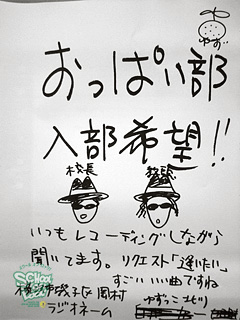 やずい
おっぱい部
入部希望!!
校長 教頭
いつもレコーディングしながら
聞いてます。リクエスト「逢いたい」
すごいいい曲ですね
横浜市磯子区岡村
ラジオネーム